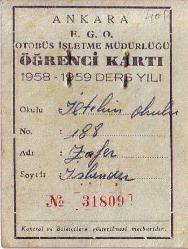 ANKARA
E. G. O.
OTOBÜS İŞLETME MÜDÜRLÜĞÜ
ÖĞRENCİ KARTI
1958 - 1959 DERS YILI
Okulu
No. 188
Adı Zafer
Soyadı İskender
№ 31809
Kontrol ve Biletçilere gösterilmesi mecburidir.